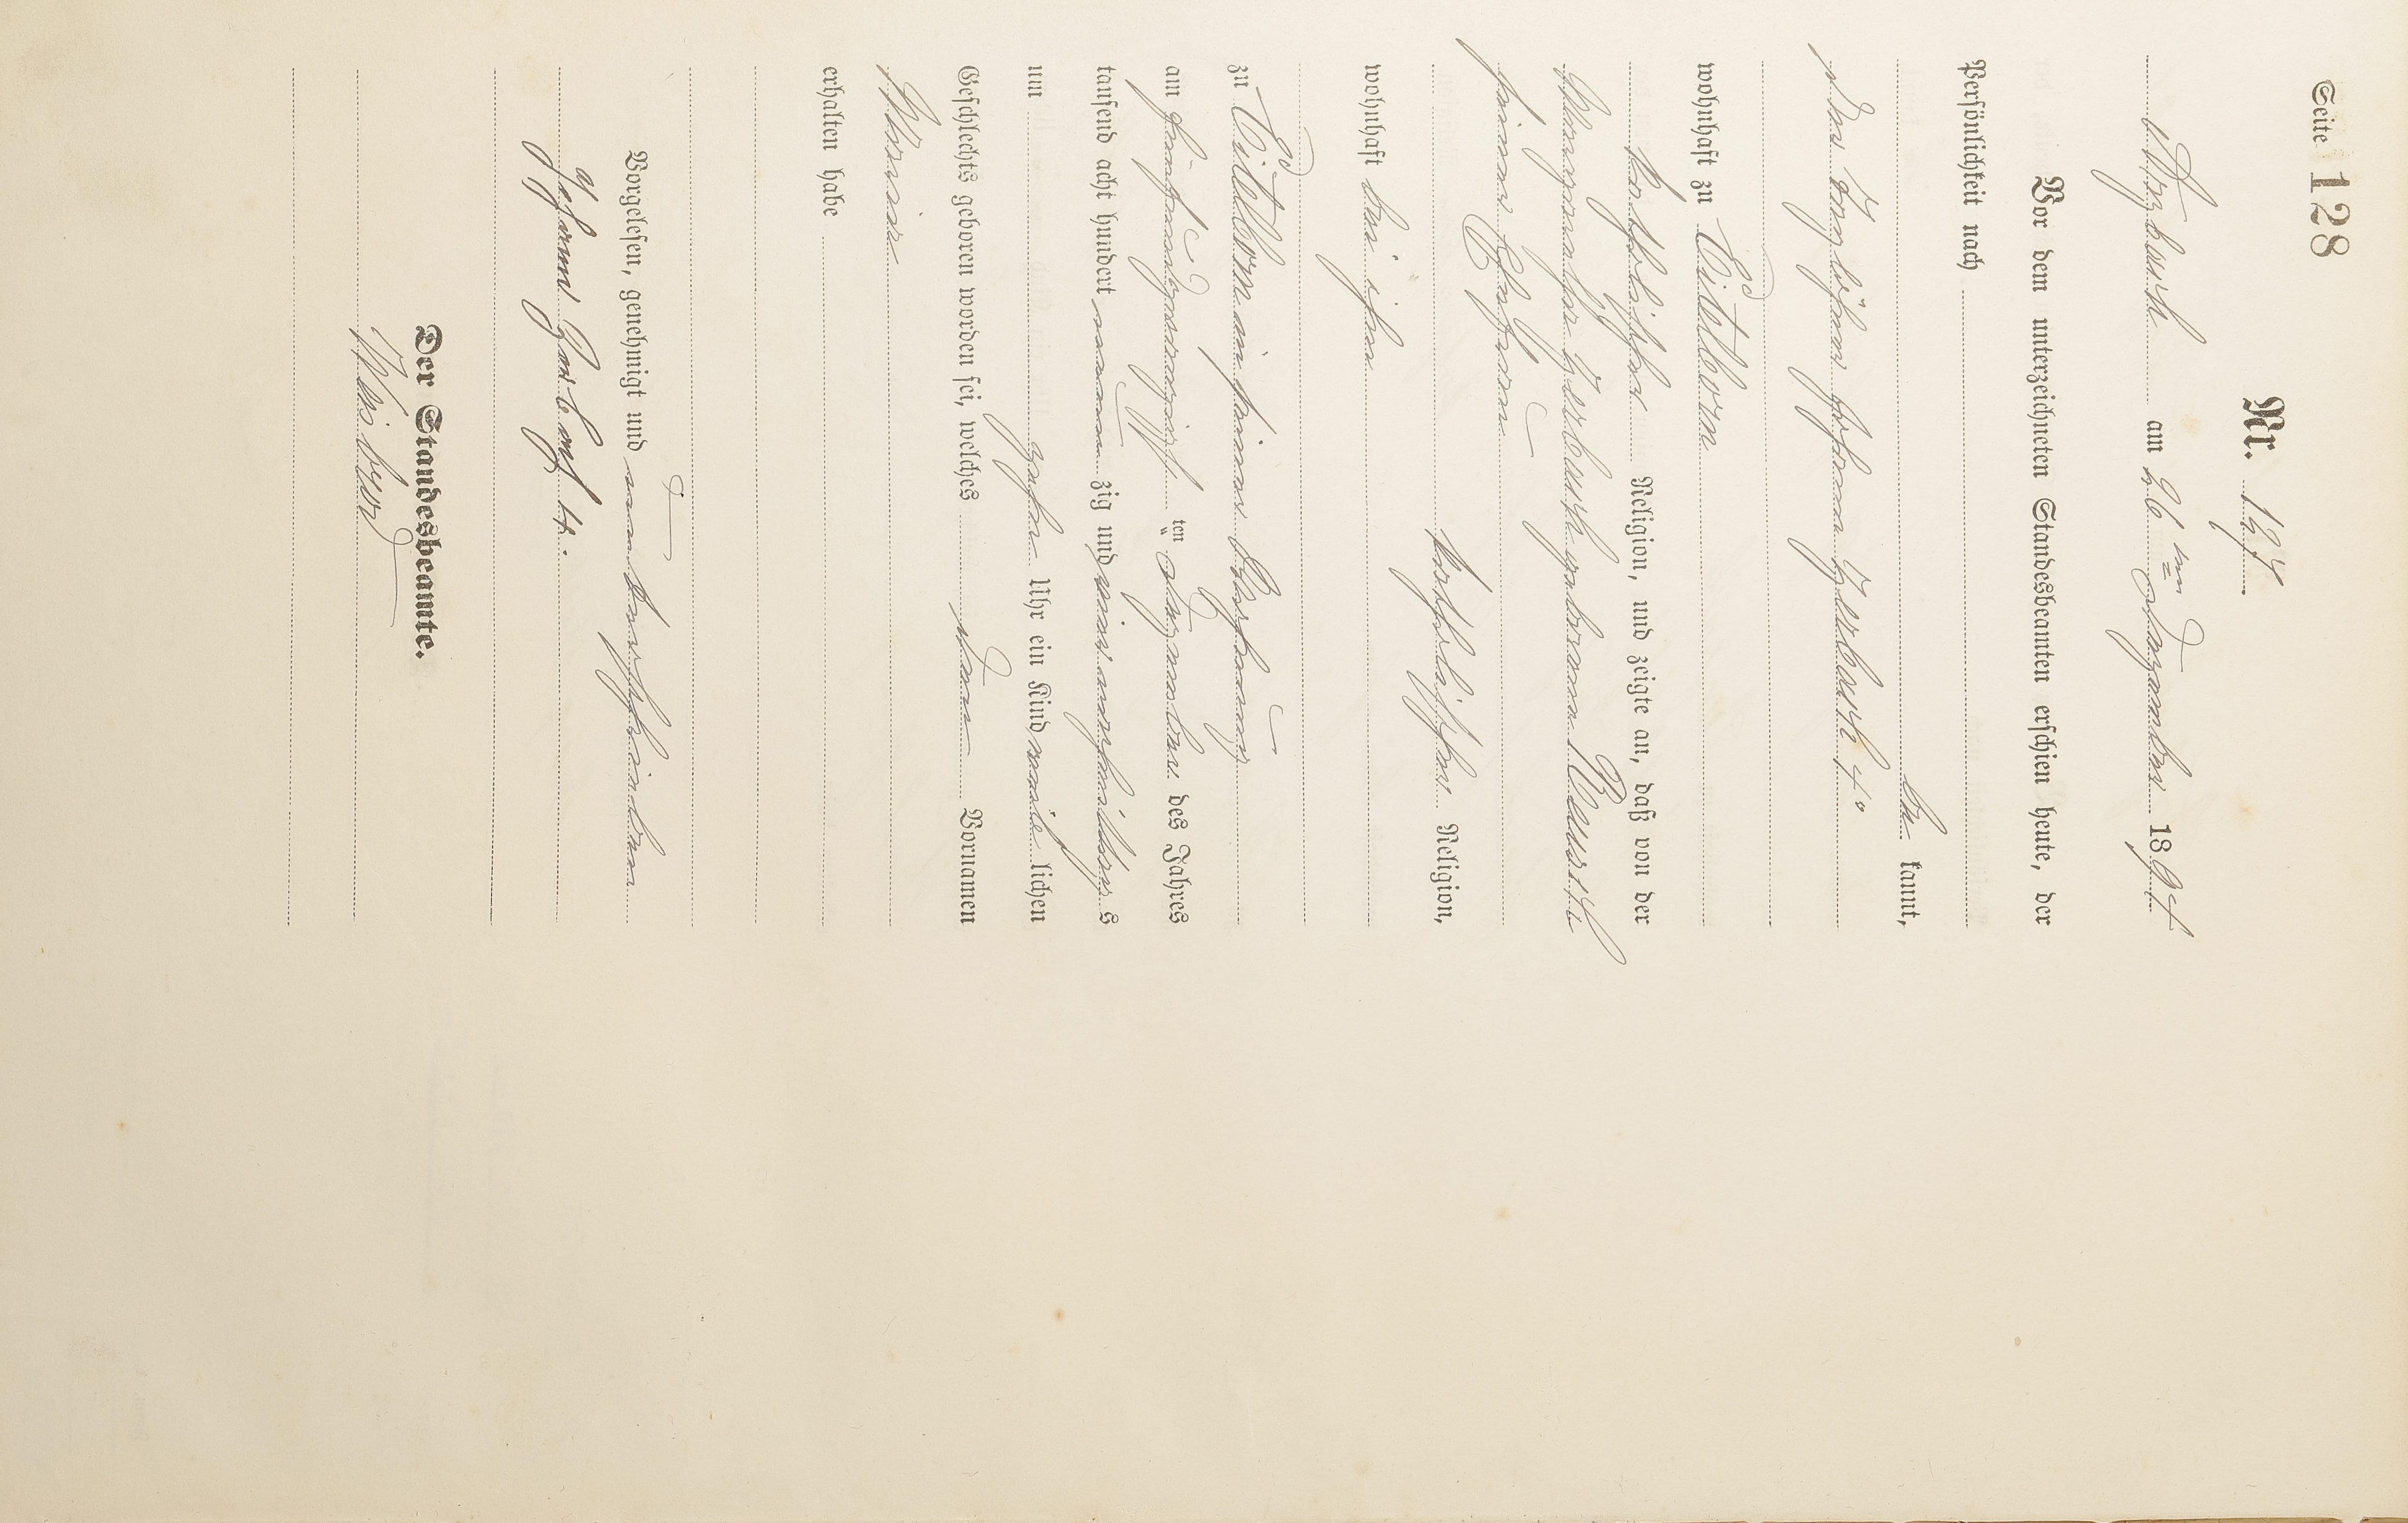 Seite 128
Nr. 127
am 26ten Dezember 1894
Vor dem unterzeichneten Standesbeamten erschien heute, der
Persönlichkeit nach
be kannt,
der Tagelöhner Johann
wohnhaft zu Eitelborn
katholischer Religion, und zeigte an, daß von der
Margaretha geborenen
seiner Ehefrau
katholischer Religion,
wohnhaft bei ihm
zu Eitelborn in seiner Behausung
am fünfundzwanzigsten Dezember des Jahres
tausend acht hundert neun zig und vier
um zehn Uhr ein Kind weib lichen
Geschlechts geboren worden sei, welches den Vornamen
Maria
erhalten habe
Vorgelesen, genehmigt und unterschrieben
Johann
Der Standesbeamte.